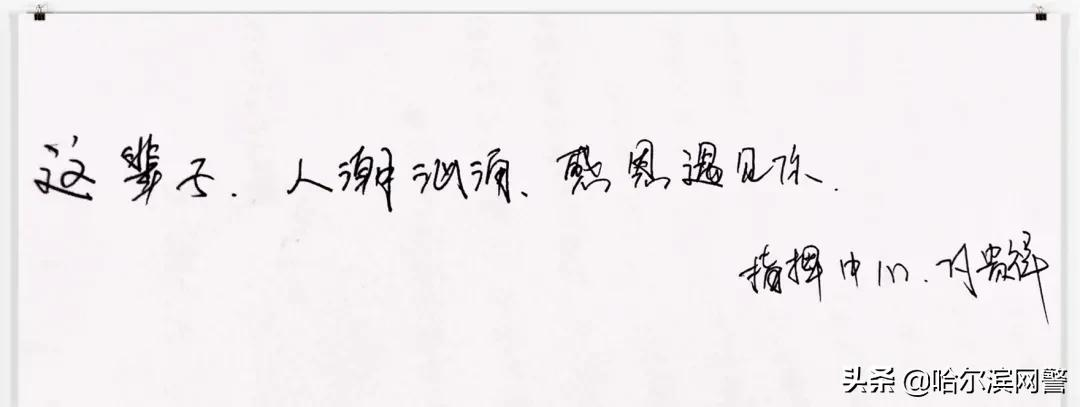 这辈子.人潮汹涌、感恩遇见你.
指挥中心.
头条 @哈尔滨网警